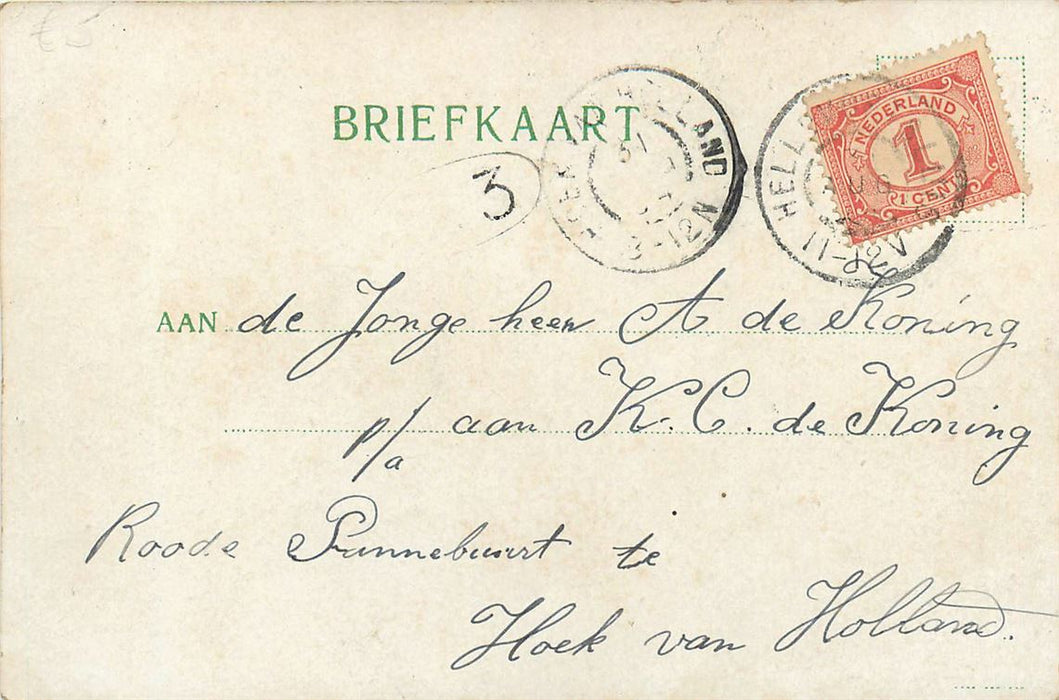 £5
BRIEFKAART
3
HOEK VAN HOLLAND
8-12N
HELL
11-12V
NEDERLAND
1
1 CENT
AAN de Jonge heer A de Koning
p/a aan K. C. de Koning
Roode Pannebuurt te
Hoek van Holland.